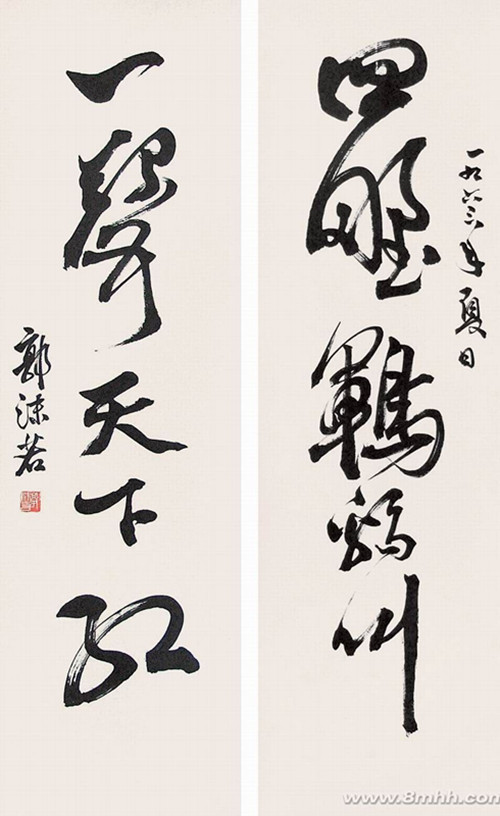 一九六三年夏日
四野鶤鷄叫
一聲天下紅
郭沫若
www.8mhh.com